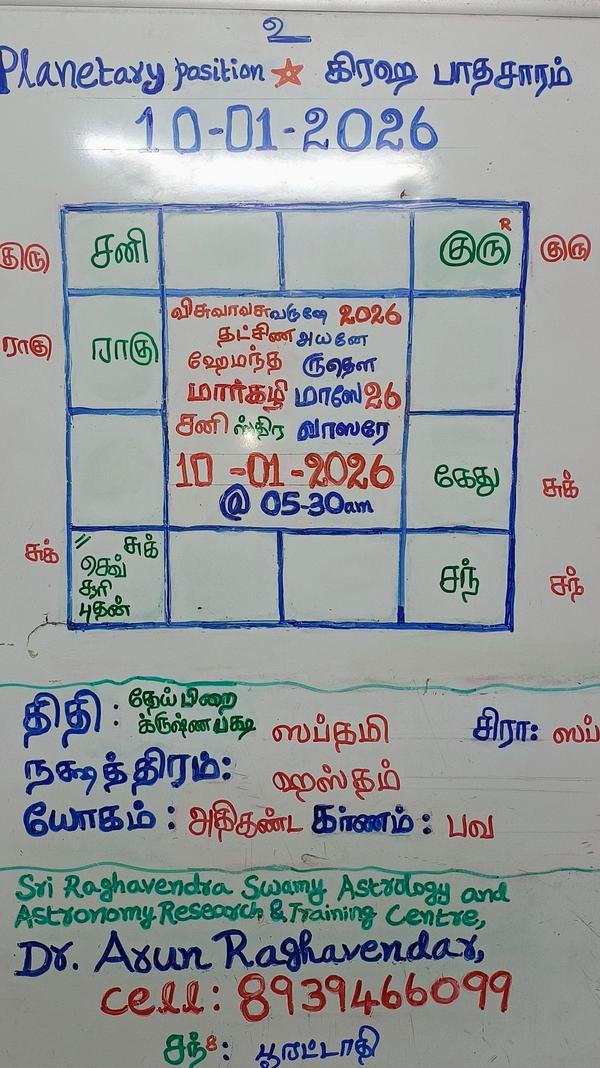 உ
Planetary position கிரஹ பாதசாரம்
10-01-2026
குரு சனி குரு R குரு
ராகு ராகு
விசுவாவசுவருஷே 2026
தட்சிண அயனே
ஹேமந்த ருதௌ
மார்கழி மாஸே 26
சனி ஸ்திர வாஸரே
10-01-2026
@ 05-30am
கேது சுக்
சுக் // சுக்
செவ்
சூரி
புதன்
சந் சந்
திதி : தேய்பிறை
க்ருஷ்ணபக்ஷ ஸப்தமி சிரா: ஸப்
நக்ஷத்திரம்: ஹஸ்தம்
யோகம் : அதிகண்ட கரணம் : பவ
Sri Raghavendra Swamy Astrology and
Astronomy Research & Training Centre,
Dr. Arun Raghavendar,
cell: 8939466099
சந்8: பூரட்டாதி